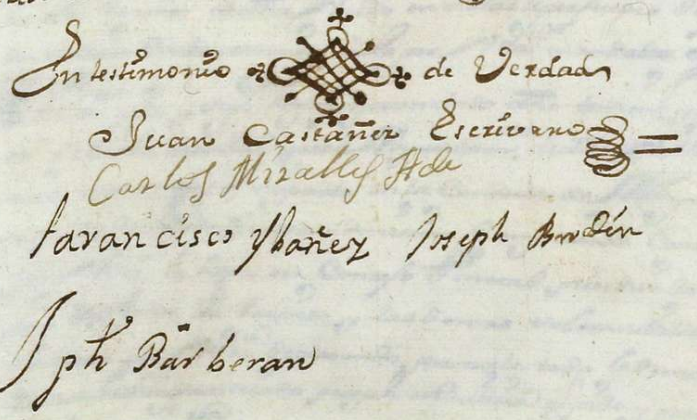 En testimonio de Verdad
Juan Castañer Escrivano
Carlos Miralles Alde
Farancisco Ybañez Joseph Bordín
Jph Barberan